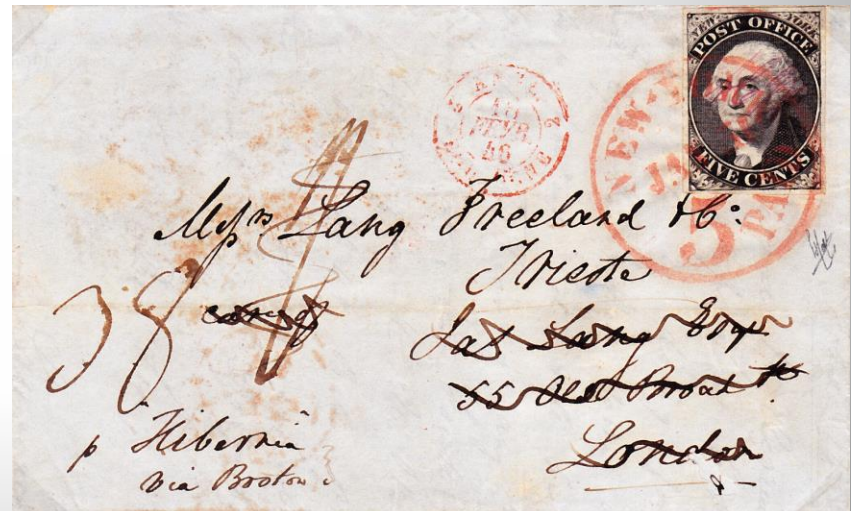 NEW YORK
POST OFFICE
FIVE CENTS
NEW-
JA
5
PA
10
FEVR
46
2
Messrs Lang Freeland & Co:
Trieste
care of
Jas Lang Esqr
55 Old Broad St
London
38
p Hibernia
via Boston